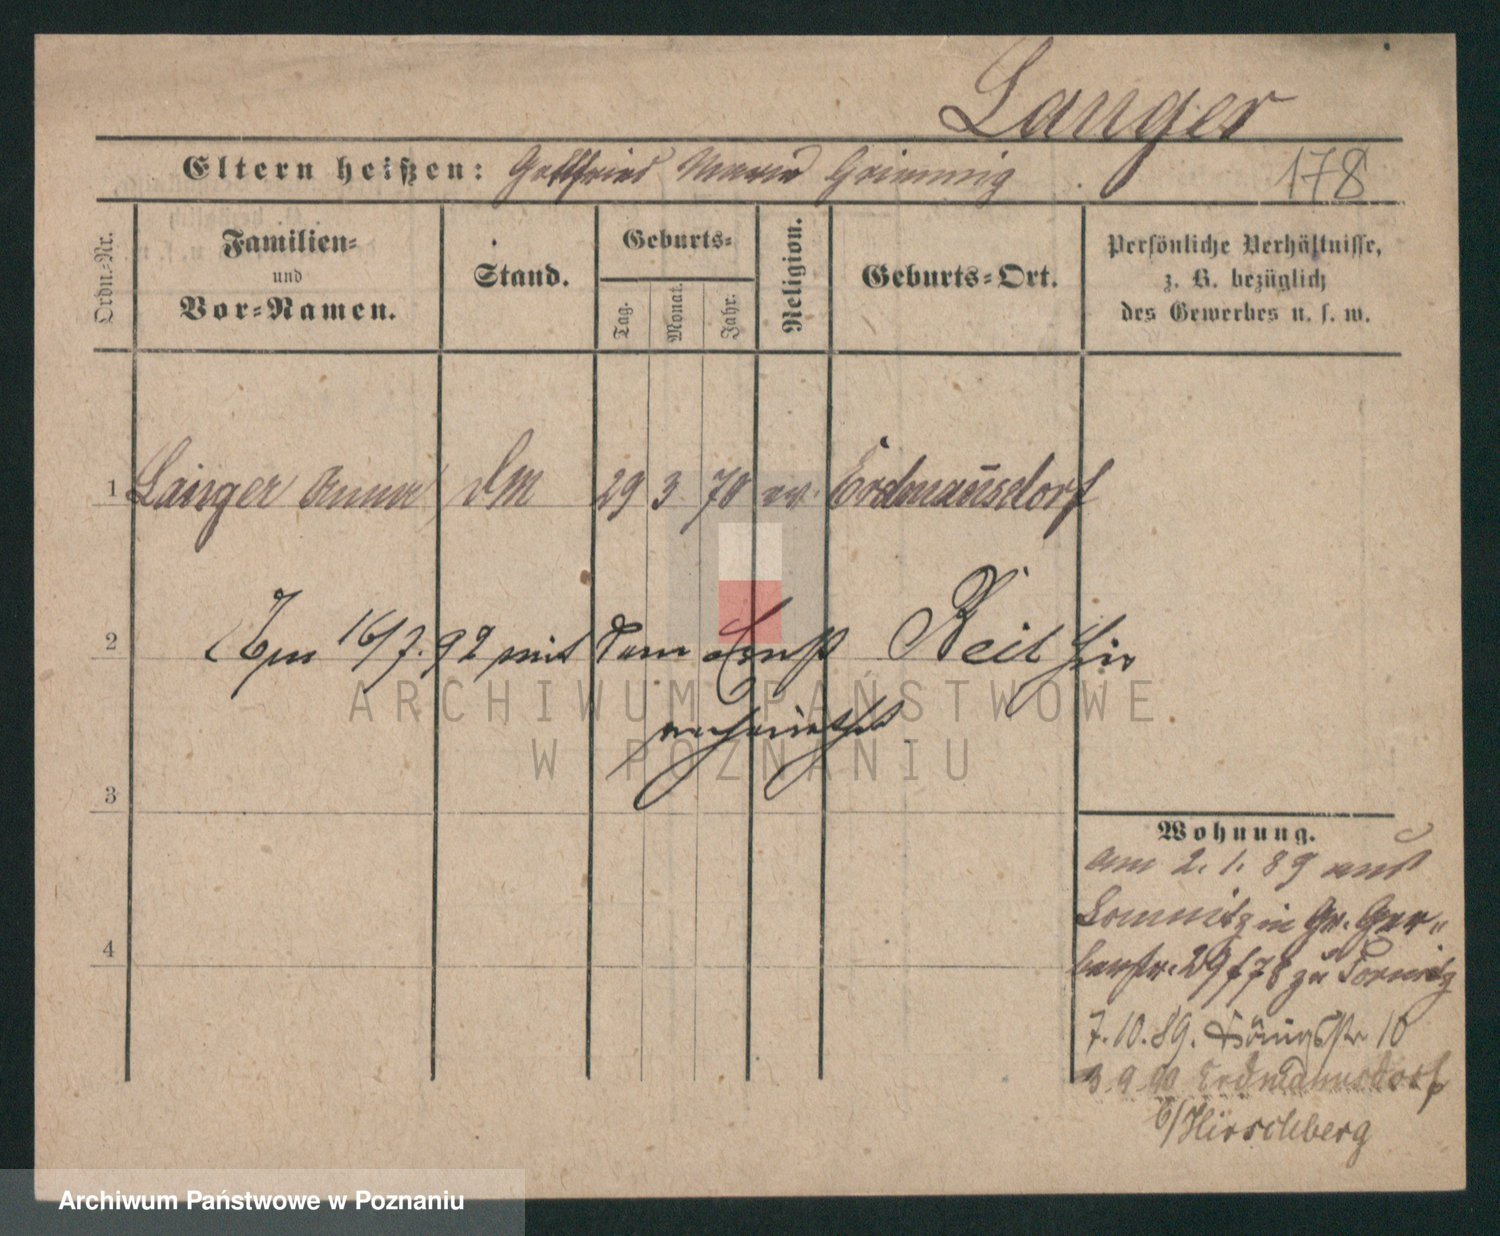 Langer
Eltern heißen: Gottfried Maria Grimmig
178
Ordn.-Nr.
Familien- und Vor-Namen.
Stand.
Geburts-
Tag.
Monat.
Jahr.
Religion.
Geburts-Ort.
Persönliche Verhältnisse,
z. B. bezüglich
des Gewerbes u. s. w.
1 Langer Anna DM 29 3 70 ev. Erdmannsdorf
2 Am 16/7. 92 mit dem Ernst Keil hier
verheirathet
ARCHIWUM PAŃSTWOWE
W POZNANIU
3
Wohnung.
am 2. 1. 89 aus
Lomnitz in Gr. Ger-
berstr. 29 f 78 zu
4
7. 10. 89. Königsstr 10
3 9 90 Erdmannsdorf
b/Hirschberg
Archiwum Państwowe w Poznaniu